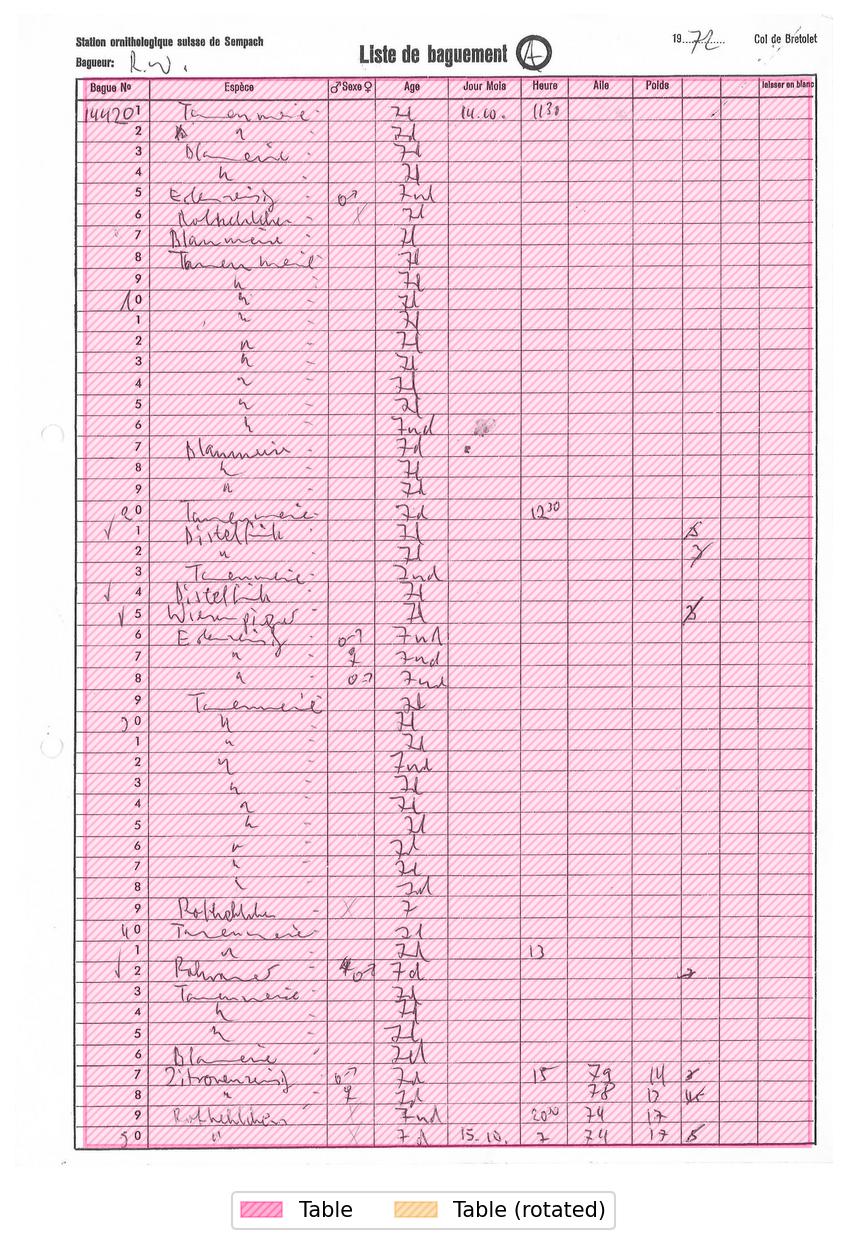 Station ornithologique suisse de Sempach
Liste de baguement A
1972 Col de Brétolet
Bagueur: R.W.
Bague Nº Espèce ♂ Sexe ♀ Age Jour Mois Heure Aile Poids laisser en blanc
144201 Tannenmeise 7d 14.10. 11 30
2 " 7d
3 Blaumeise 7d
4 " 7d
5 Erlenzeisig ♂ 7nd
6 Rotkehlchen 7d
7 Blaumeise 7d
8 Tannenmeise 7d
9 " 7d
10 " 7d
1 " 7d
2 " 7d
3 " 7d
4 " 7d
5 " 7d
6 " 7nd
7 Blaumeise 7d
8 " 7d
9 " 7d
20 Tannenmeise 7d 12 30
1 Distelfink 7d
2 " 7d
3 Tannenmeise 7nd
4 Distelfink 7d
5 Wiesenpieper 7d
6 Erlenzeisig ♂ 7nd
7 " ♀ 7nd
8 " ♂ 7nd
9 Tannenmeise 7d
30 " 7d
1 " 7d
2 " 7nd
3 " 7d
4 " 7d
5 " 7d
6 " 7d
7 " 7d
8 " 7d
9 Rotkehlchen 7
40 Tannenmeise 7d
1 " 7d 13
2 ♂ 7d
3 Tannenmeise 7d
4 " 7d
5 " 7d
6 Blaumeise 7d
7 Zitronenzeisig ♂ 7d 15 79 14
8 " ♀ 7d 78 12
9 Rotkehlchen 7nd 20 30 74 17
50 " 7d 15.10. 7 74 17
Table Table (rotated)